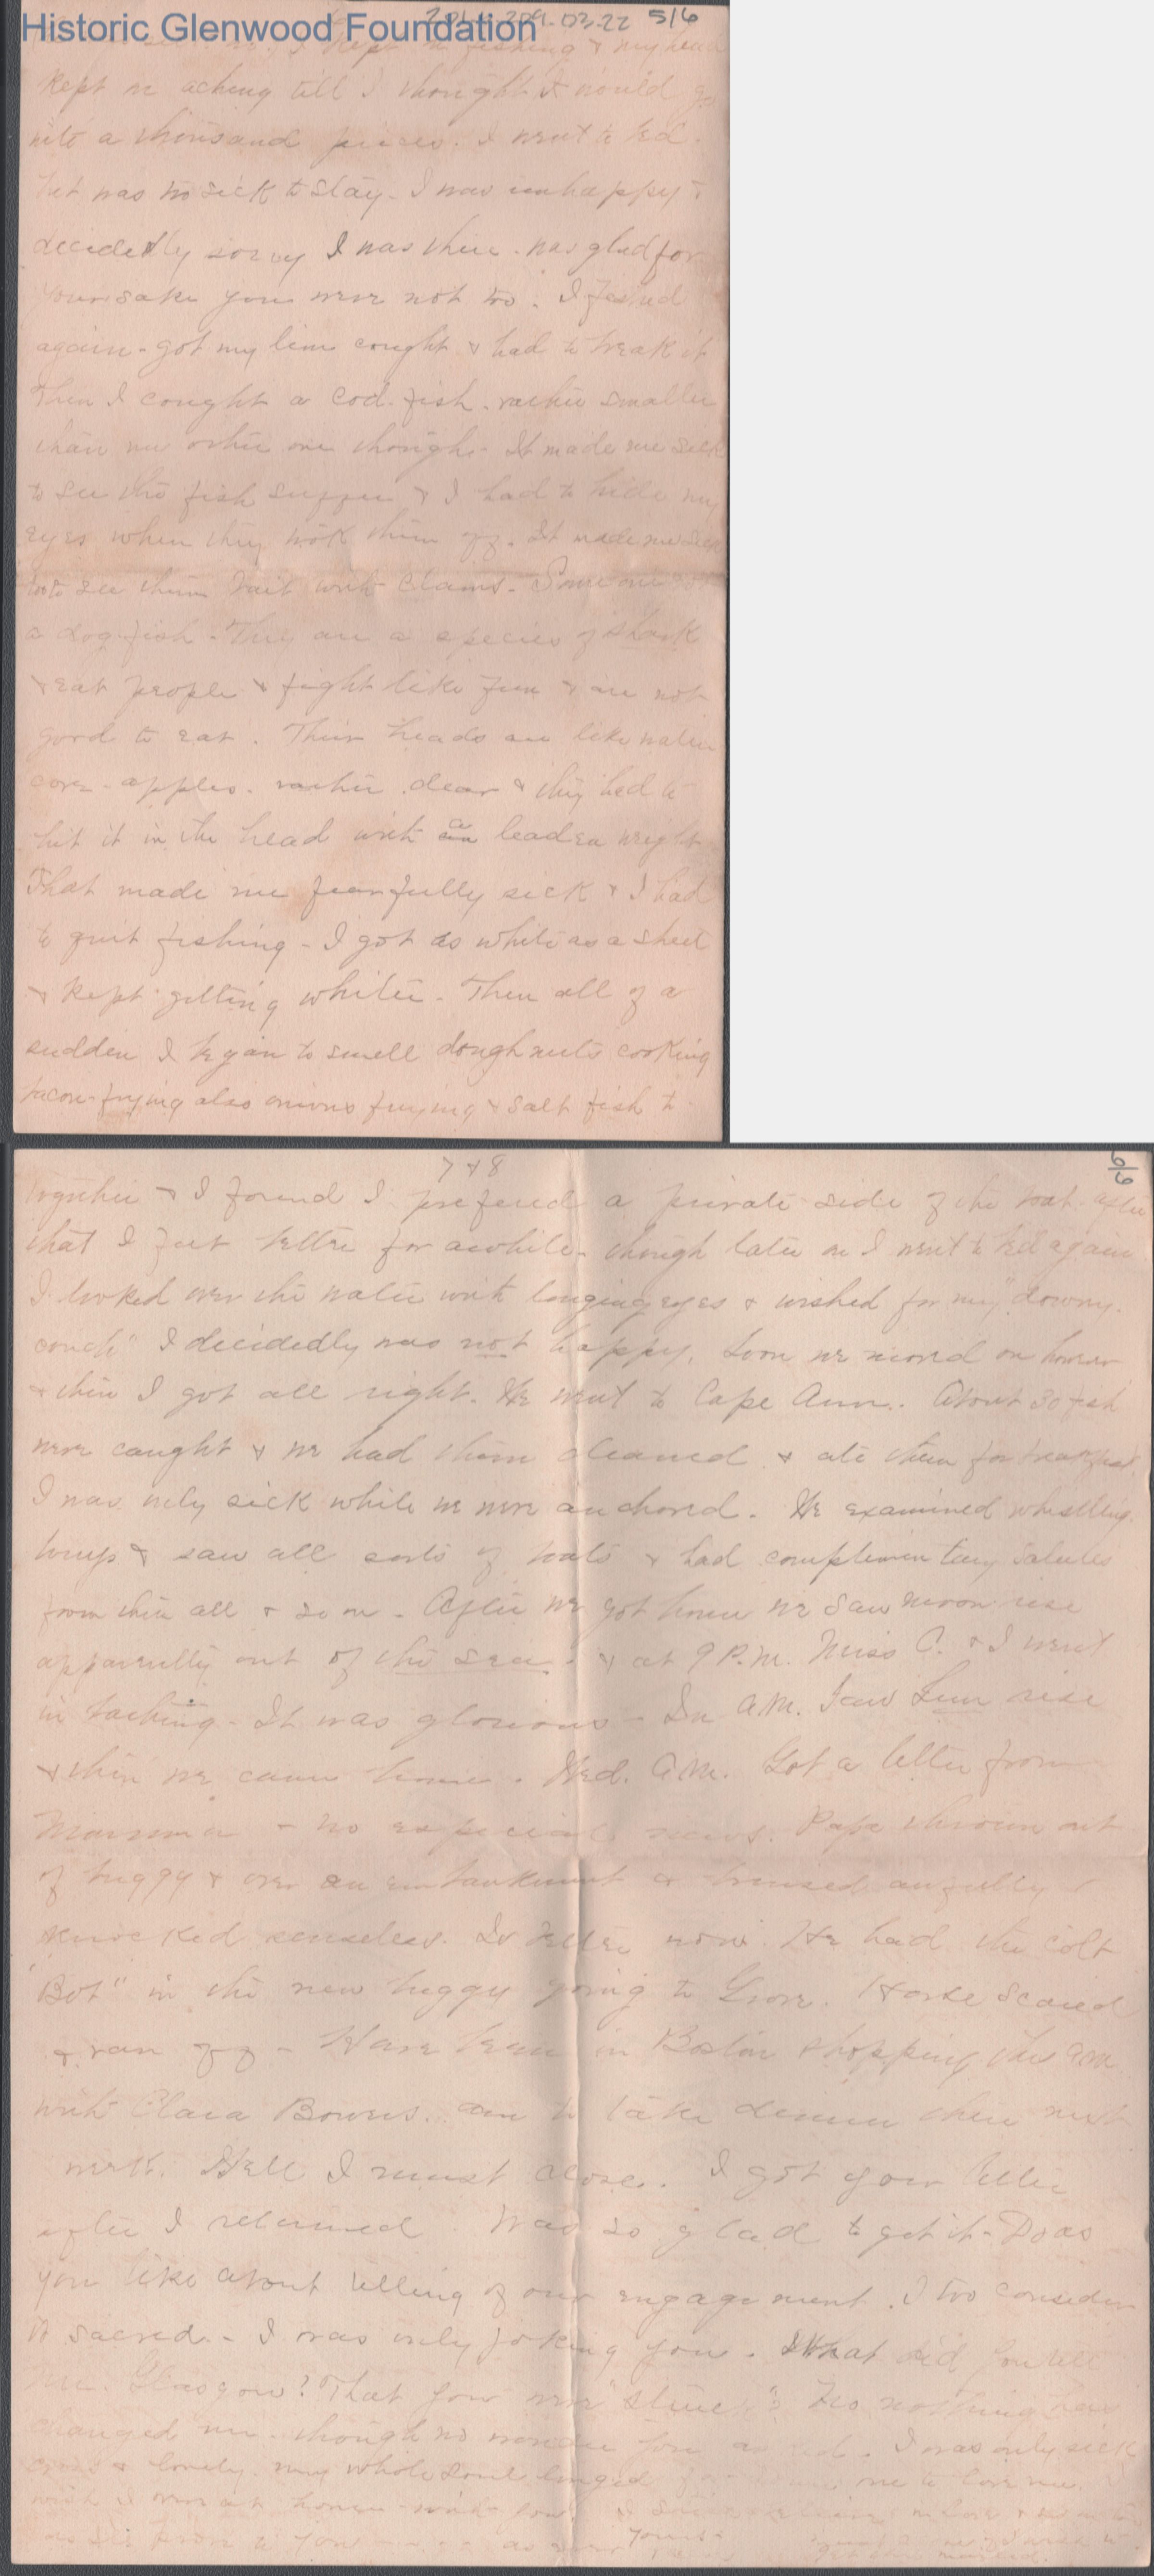 Historic Glenwood Foundation
209-03-22 5/6
I kept on fishing & my head
kept on aching till I thought it would go
into a thousand pieces. I went to bed
but was too sick to stay - I was unhappy &
decidedly sorry I was there. was glad for
your sake you were not too. I fished
again - got my line cought & had to break it
Then I cought a cod fish. rather smaller
than my other one though - It made me sick
to see the fish suffer & I had to hide my
eyes when they took them off. It made me sick
too to see them bait with clams. Some one got
a dog fish - They are a species of shark
& eat people & fight like fun & are not
good to eat. Their heads are like
core - apples. rather dear & they had to
hit it in the head with a leaden weight
That made me fearfully sick & I had
to quit fishing - I got as white as a sheet
& kept getting whiter - Then all of a
sudden I began to smell doughnuts cooking
bacon frying also onions frying & salt fish to-
7 & 8
6/6
together & I found I prefered a private side of the boat. after
that I felt better for awhile - though later on I went to bed again
I looked over the water with longing eyes & wished for my "downy
couch" I decidedly was not happy. Soon we moved on however
& then I got all right. We went to Cape Ann. About 30 fish
were caught & we had them cleaned & ate them for breakfast.
I was only sick while we were anchored. We examined whistling
buoys & saw all sorts of boats & had complimentary salutes
from them all & so on - After we got home we saw moon rise
apparently out of the sea. & at 9 P.M. Miss C. & I went
in bathing - It was glorious - In A.M. Saw Sun rise
& then we came home. Wed. A.M. Got a letter from
Mamma - no especial news. Papa thrown out
of buggy & over an embankment & bruised awfully &
knocked senseless. Is better now. He had the colt
"Bot" in the new buggy going to Grove. Horse scared
& ran off - Have been in Boston shopping this a.m.
with Clara Bowers. am to take dinner there next
week. Well I must close. I got your letter
after I returned. Was so glad to get it - Do as
you like about telling of our engagement. I too consider
it sacred - I was only joking you. What did you tell
Mr. Glasgow? That you were No nothing has
changed me though no wonder you I was only sick
cross & lonely. my whole soul longed for one to love me.
wish I were at home with you
as you
Yours